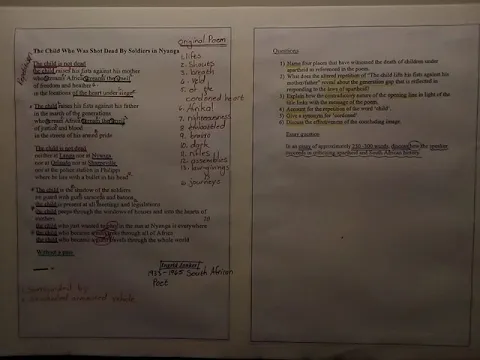 The Child Who Was Shot Dead By Soldiers in Nyanga
The child is not dead
the child raises his fists against his mother
who screams Africa
of freedom and heather
in the locations of the heart under siege
The child raises his fists against his father
in the march of the generations
who scream Africa
of justice and blood
in the streets of his armed pride
The child is not dead
neither at Langa nor at Nyanga
nor at Orlando nor at Sharpeville
nor at the police station in Philippi
where he lies with a bullet in his head
The child is the shadow of the soldiers
on guard with guns saracens and batons
the child is present at all meetings and legislations
the child peeps through the windows of houses and into the hearts of
mothers
20
the child who just wanted to play in the sun at Nyanga is everywhere
the child who became a man treks through all of Africa
the child who became a giant travels through the whole world
Without a pass
Original Poem
1. lifts
2. Shouts
3. breath
4. veld
5. of the
cordoned heart
6. Afrika!
7. righteousness
9. brave
10. dark
11. rifles
12. assemblies
13. law-givings
14. journeys
Ingrid Jonker
1933 - 1965 South African
Poet
Questions
1) Name four places that have witnessed the death of children under
apartheid as referenced in the poem.
2) What does the altered repetition of "The child lifts his fists against his
mother/father" reveal about the generation gap that is reflected in
responding to the laws of apartheid?
3) Explain how the contradictory nature of the opening line in light of the
title links with the message of the poem.
4) Account for the repetition of the word 'child'.
5) Give a synonym for 'cordoned'
6) Discuss the effectiveness of the concluding image.
Essay question
In an essay of approximately 250-300 words, discuss how the speaker
succeeds in criticising apartheid and South African society.